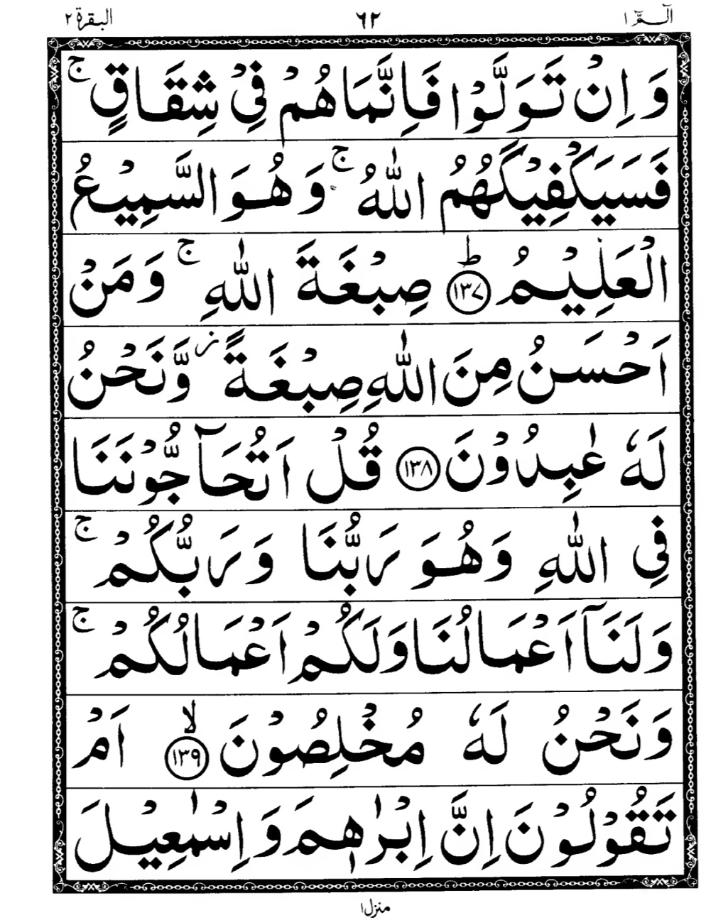 الٓـمّٓ ١ ٦٢ البقرة ٢
وَاِنْ تَوَلَّوْا فَاِنَّمَا هُمْ فِيْ شِقَاقٍ ۚ
فَسَيَكْفِيْكَهُمُ اللّٰهُ ۚ وَهُوَ السَّمِيْعُ
الْعَلِيْمُ ؕ ﴿١٣٧﴾ صِبْغَةَ اللّٰهِ ۚ وَمَنْ
اَحْسَنُ مِنَ اللّٰهِ صِبْغَةً ز وَّنَحْنُ
لَهٗ عٰبِدُوْنَ ﴿١٣٨﴾ قُلْ اَتُحَآجُّوْنَنَا
فِي اللّٰهِ وَهُوَ رَبُّنَا وَرَبُّكُمْ ۚ
وَلَنَآ اَعْمَالُنَا وَلَكُمْ اَعْمَالُكُمْ ۚ
وَنَحْنُ لَهٗ مُخْلِصُوْنَ ۙ ﴿١٣٩﴾ اَمْ
تَقُوْلُوْنَ اِنَّ اِبْرٰهٖمَ وَاِسْمٰعِيْلَ
منزل ١